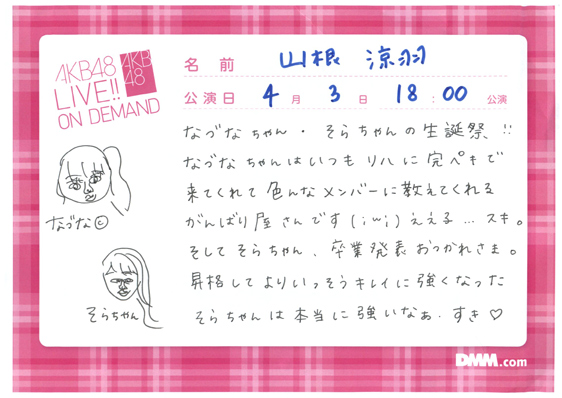 AKB48
LIVE!!
ON DEMAND
AKB
48
名前 山根 涼羽
公演日 4月 3日 18:00 公演
なづなちゃん・そらちゃんの生誕祭!!
なづなちゃんはいつもリハに完ペキで
来てくれて色んなメンバーに教えてくれる
がんばり屋さんです(;ω;)ええ子...スキ。
そしてそらちゃん、卒業発表おつかれさま。
昇格してよりいっそうキレイに強くなった
そらちゃんは本当に強いなぁ。すき♡
なづな©
そらちゃん
DMM.com